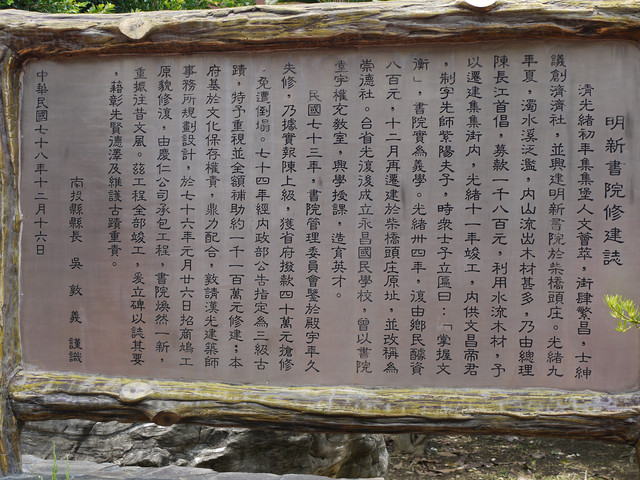 明新書院修建誌
清光緒初年集集堡人文薈萃，街肆繁昌，士紳
議創濟濟社，並興建明新書院於柴橋頭庄。光緒九
年夏，濁水溪泛濫，內山流出木材甚多，乃由總理
陳長江首倡，募款一千八百元，利用水流木材，予
以遷建集集街內，光緒十一年竣工，內供文昌帝君
，制字先師紫陽夫子，時衆士子立匾曰：「掌握文
衡」，書院實為義學。光緒卅四年，復由鄉民醵資
八百元，十二月再遷建於柴橋頭庄原址，並改稱為
崇德社。台省光復後成立永昌國民學校，曾以書院
堂字權充教室，興學授課，造育英才。
民國七十三年，書院管理委員會鑒於殿宇年久
失修，乃據實報陳上級，獲省府撥款四十萬元搶修
，免遭倒塌。七十四年經內政部公告指定為三級古
蹟，特予重視並全額補助約一千一百萬元修建；本
府基於文化保存權責，鼎力配合，敦請漢光建築師
事務所規劃設計，於七十六年元月廿六日招商鳩工
原貌修護，由慶仁公司承包工程，書院煥然一新，
重振往昔文風。茲工程全部竣工，爰立碑以誌其要
，藉彰先賢德澤及維護古蹟重責。
南投縣縣長 吳敦義 謹識
中華民國七十八年十二月十六日